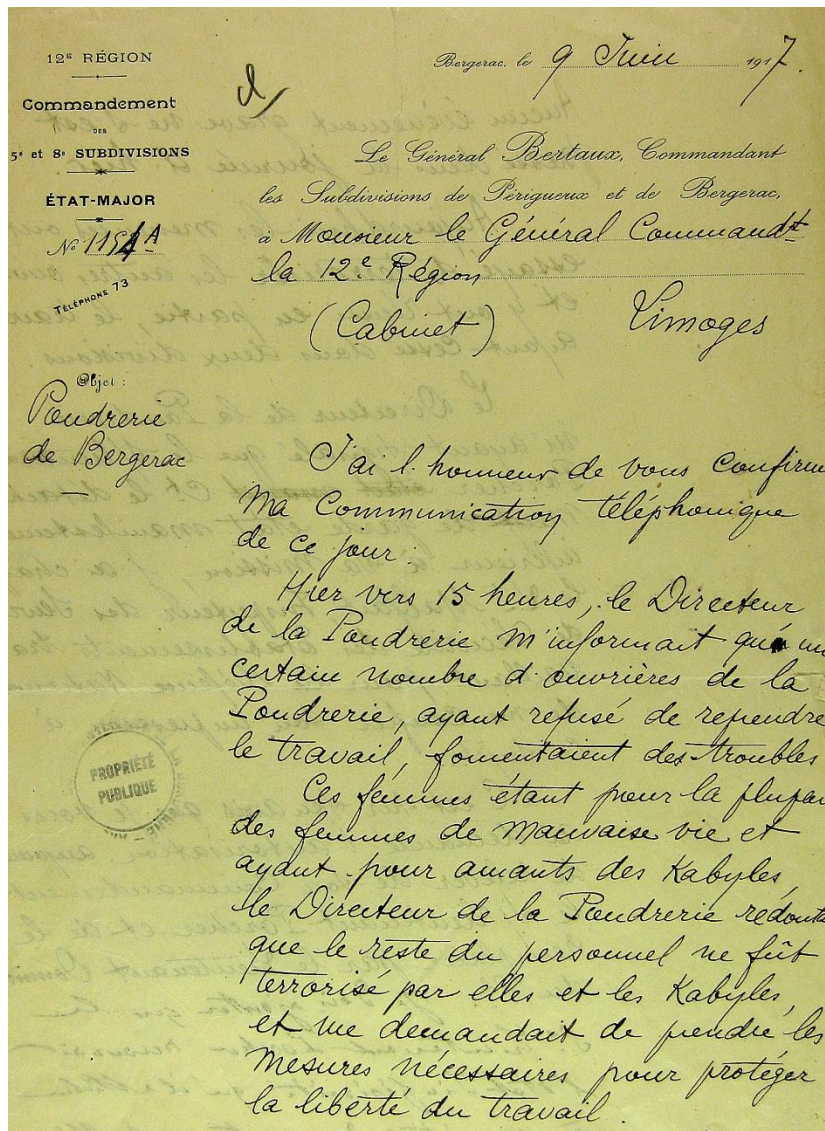 12e RÉGION
Commandement
DES
5e et 8e SUBDIVISIONS
ÉTAT-MAJOR
No 1154 A
TÉLÉPHONE 73
Objet :
Poudrerie
de Bergerac
Bergerac, le 9 Juin 1917.
Le Général Bertaux, Commandant
les Subdivisions de Périgueux et de Bergerac,
à Monsieur le Général Commandt
la 12e Région
(Cabinet) Limoges
J'ai l'honneur de vous confirme
ma communication téléphonique
de ce jour :
Hier vers 15 heures, le Directeur
de la Poudrerie m'informait qu'un
certain nombre d'ouvrières de la
Poudrerie, ayant refusé de rependre
le travail, fomentaient des troubles
Ces femmes étant pour la plupar
des femmes de mauvaise vie et
ayant pour amants des Kabyles,
le Directeur de la Poudrerie redouta
que le reste du personnel ne fût
terrorisé par elles et les Kabyles,
et me demandait de prendre les
mesures nécessaires pour protéger
la liberté du travail.
PROPRIÉTÉ
PUBLIQUE